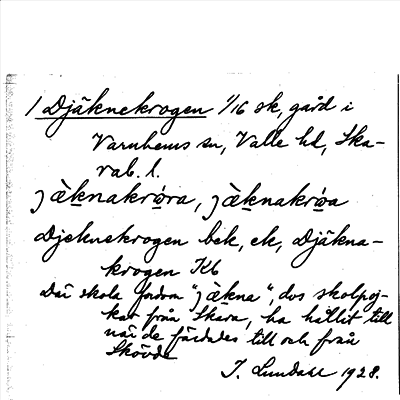 / Djäknekrogen 1/16 sk, gård i
Varnhems sn, Valle hd, Ska-
rab. l.
jæ̀knakrǿra, jæ̀knakrǿa
Djeknekrogen bek, ek, Djäkna-
krogen Kb
Där skola fordom "jækna", dvs skolpoj-
kar från Skara, ha hållit till
när de färdades till och från
Skövde
J. Lundahl 1928.